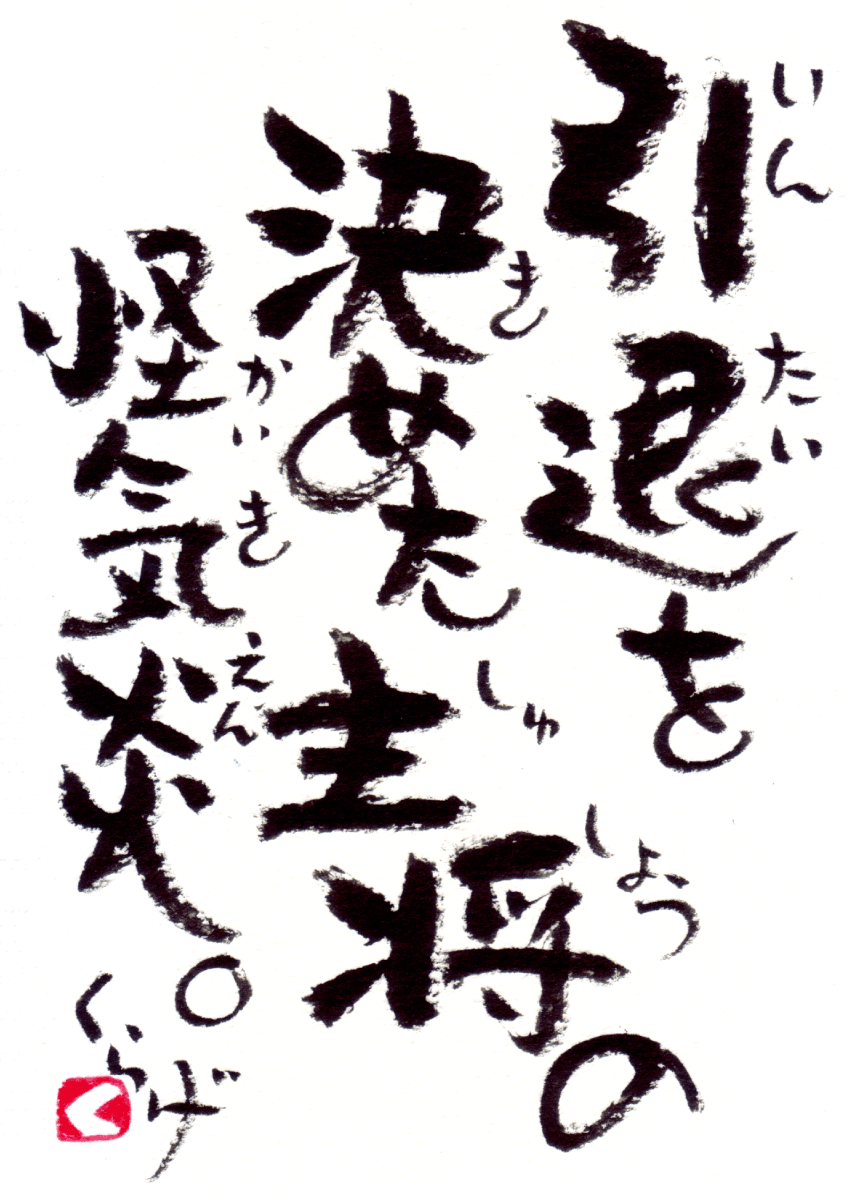 引退を
いんたい
決めた主将の
きしゅしょう
怪気炎。
かいきえん
くらげ
く